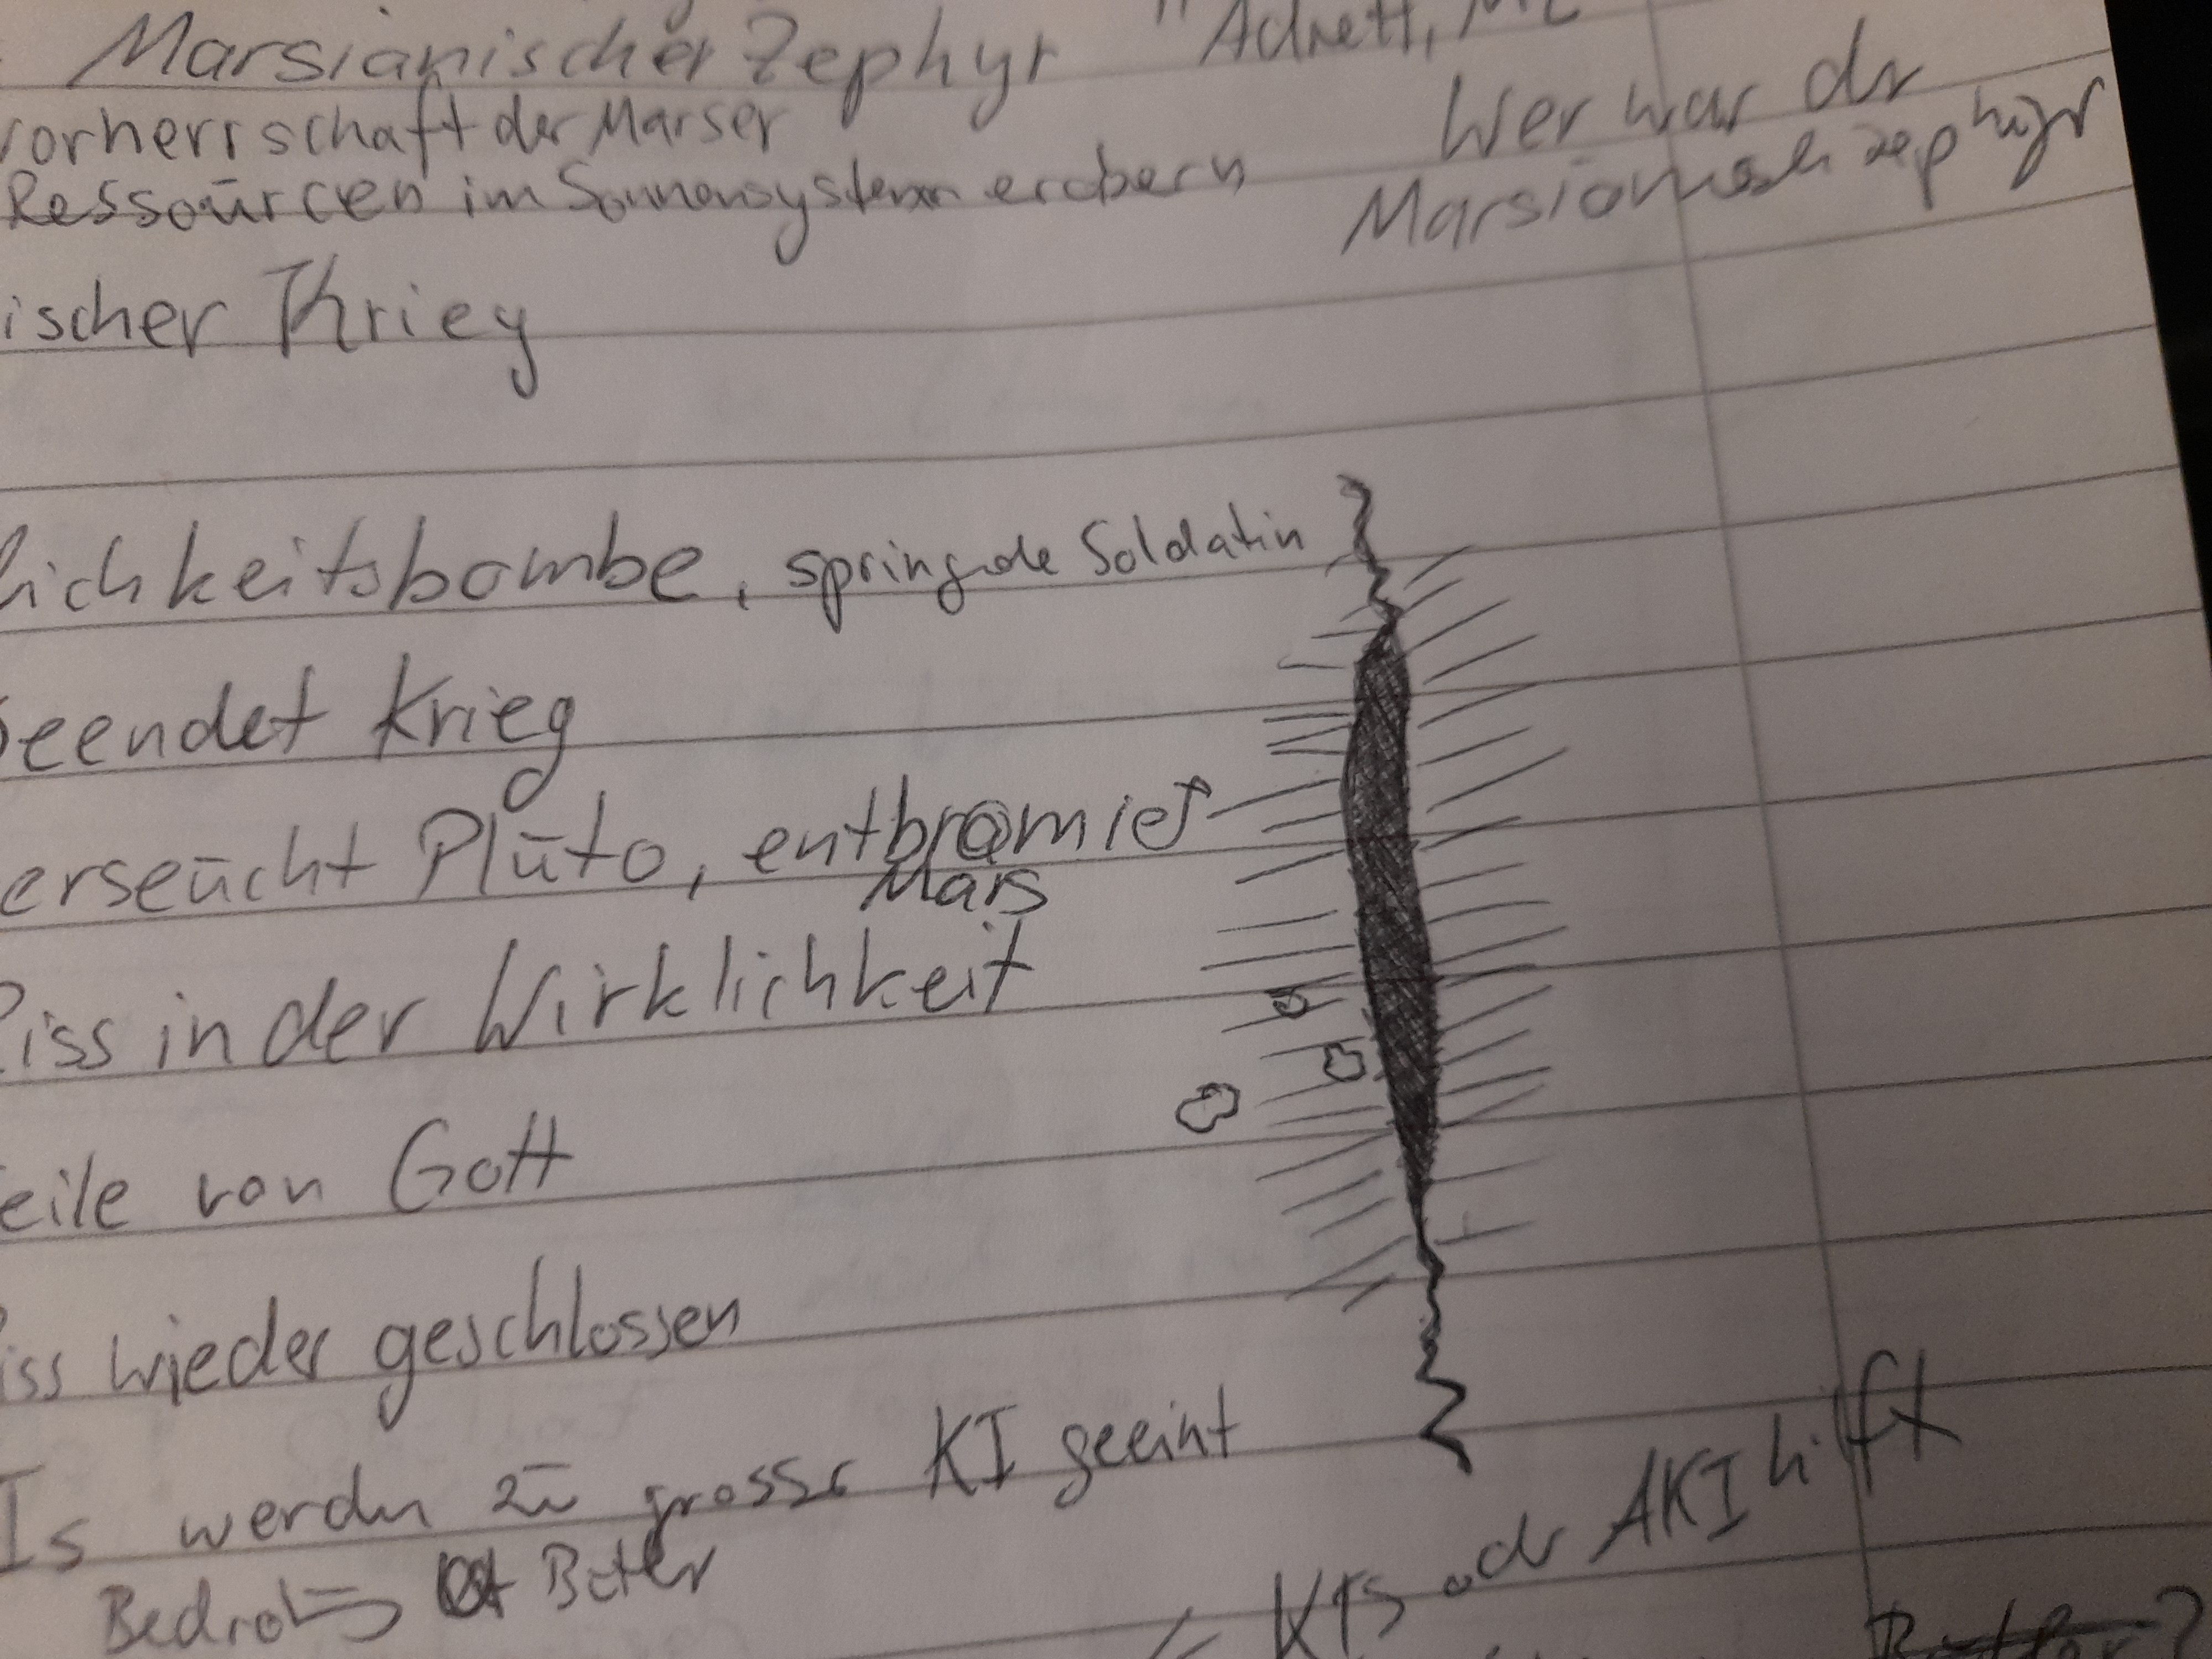 Marsianischer Zephyr
Vorherrschaft der Marser
Ressourcen im Sonnensystem erobern
Wer war dr
zephyr
ischer Krieg
lichkeitsbombe, springende Soldatin
beendet Krieg
erseucht Pluto,
Mars
Riss in der Wirklichkeit
eile von Gott
iss wieder geschlossen
Is werden zu grosse KI geeint
KIs odr AKI hilft